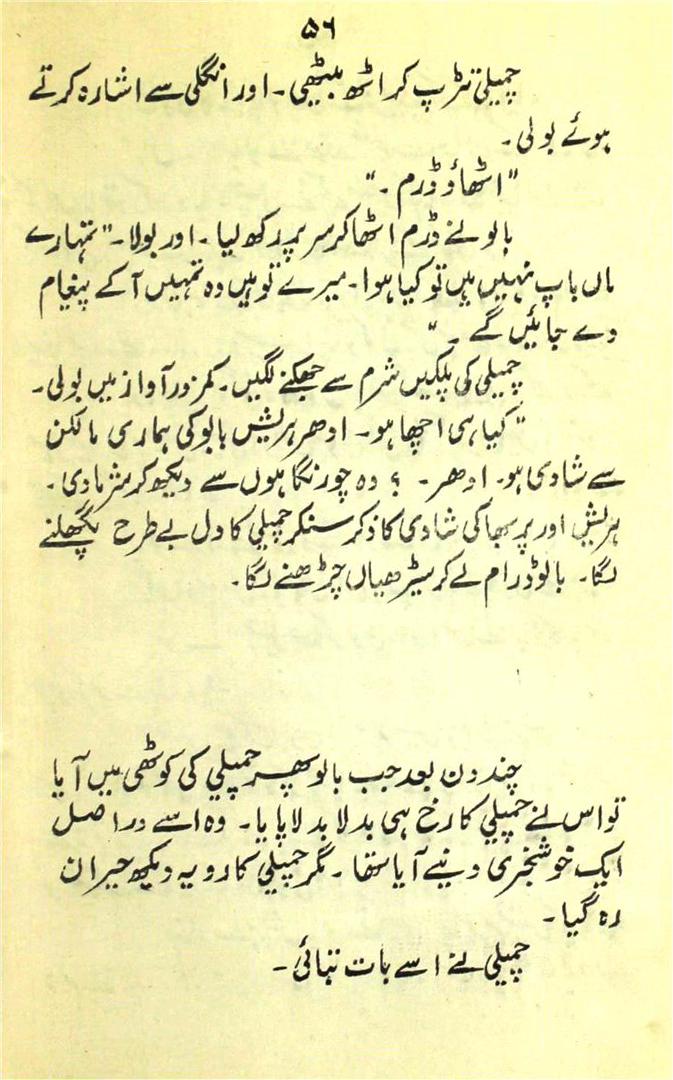 ۵۶
چمیلی تڑپ کر اٹھ بیٹھی۔ اور انگلی سے اشارہ کرتے
ہوئے بولی۔
"اٹھاؤ ڈرم۔"
بالو نے ڈرم اٹھا کر سر پر رکھ لیا۔ اور بولا۔ "تمہارے
ماں باپ نہیں ہیں تو کیا ہوا۔ میرے تو ہیں وہ تمہیں آکے پیغام
دے جائیں گے۔"
چمیلی کی پلکیں شرم سے جھکنے لگیں۔ کمزور آواز میں بولی۔
"کیا ہی اچھا ہو۔ ادھر ہریش بابو کی ہماری مالکن
سے شادی ہو۔ ادھر۔ ؟ وہ چور نگاہوں سے دیکھ کر شرمادی۔
ہریش اور پربھا کی شادی کا ذکر سنکر چمیلی کا دل بے طرح پگھلنے
لگا۔ بالو ڈرام لے کر سیڑھیاں چڑھنے لگا۔
چند دن بعد جب بالو پھر چمیلی کی کوٹھی میں آیا
تو اس نے چمیلی کا رخ ہی بدلا بدلا پایا۔ وہ اسے دراصل
ایک خوشخبری دینے آیا تھا۔ مگر چمیلی کا رویہ دیکھ حیران
رہ گیا۔
چمیلی نے اسے بات بتائی۔